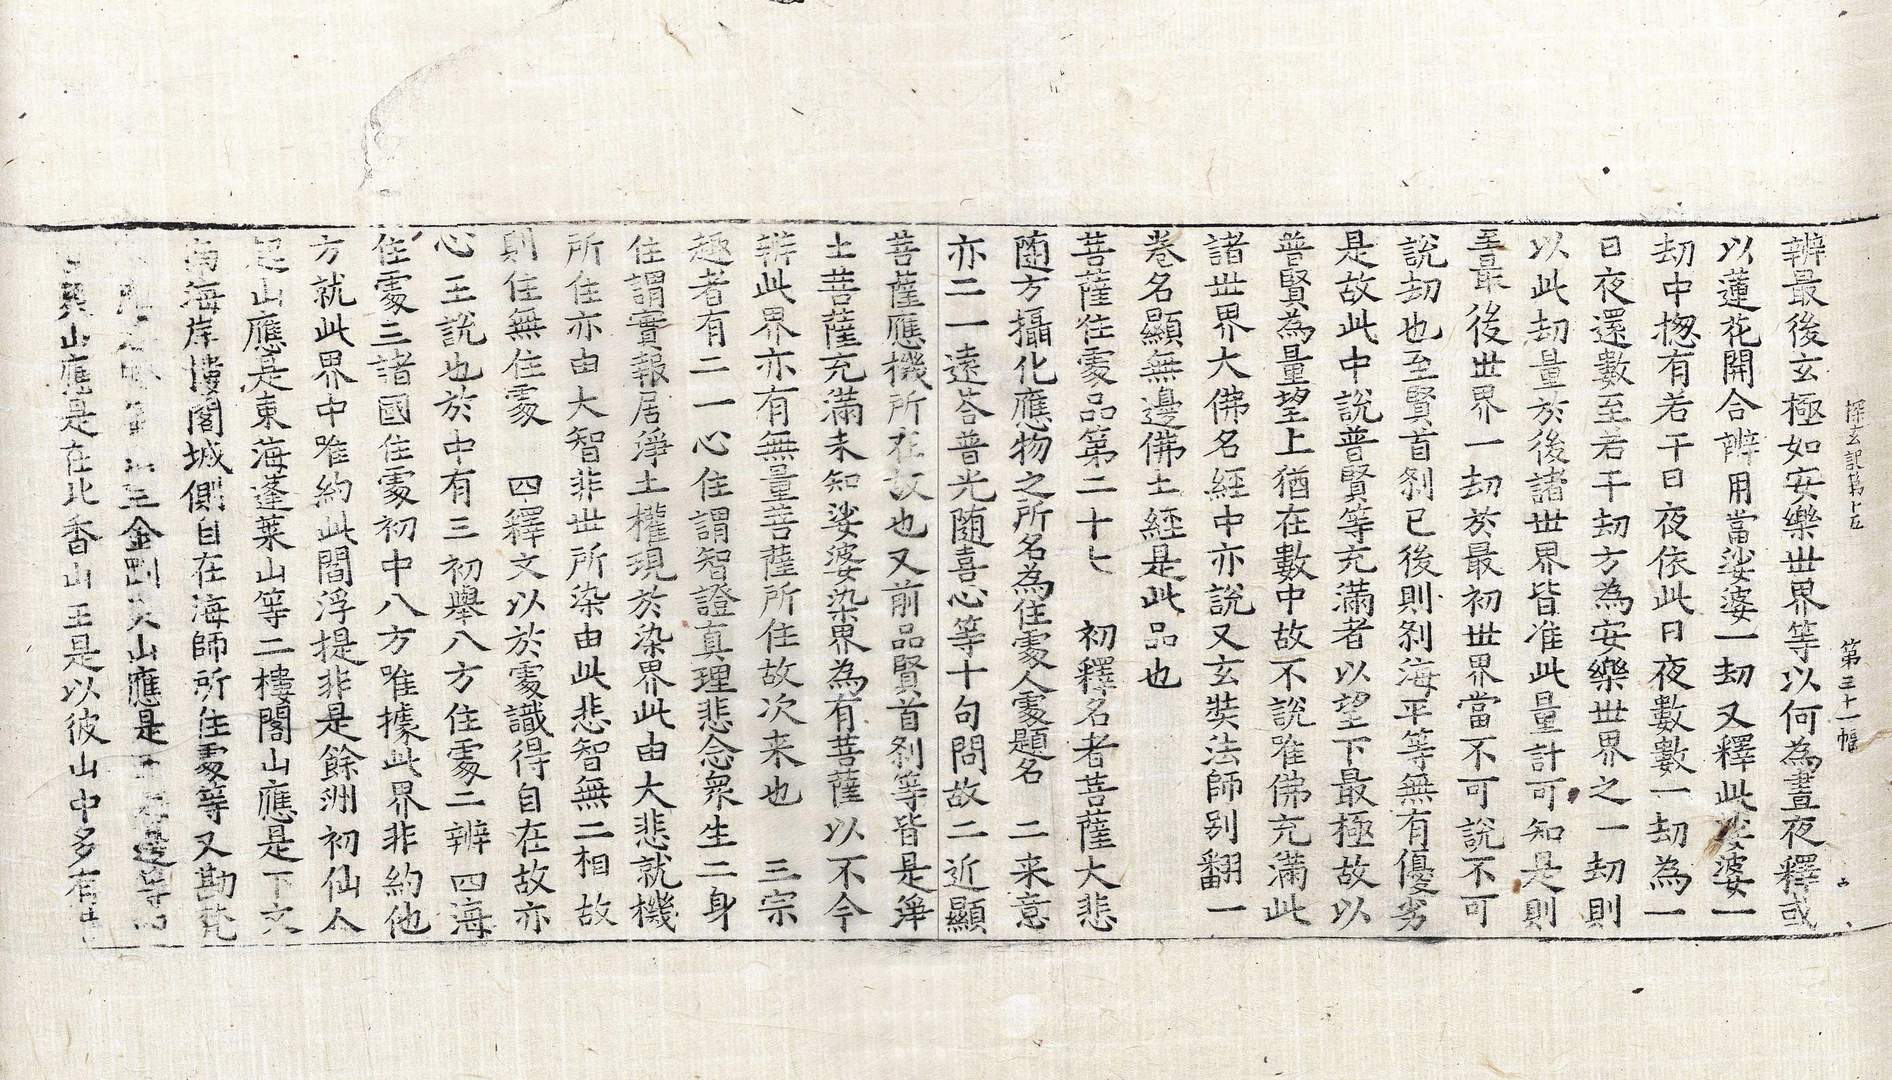 探玄記第十五 第三十一幅
辨最後玄極如安樂世界等以何為晝夜釋或
以蓮花開合辨用當娑婆一劫又釋此娑婆一
劫中揔有若干日夜依此日夜數數一劫為一
日夜還數至若干劫方為安樂世界之一劫則
以此劫量於後諸世界皆准此量計可知是則
至最後世界一劫於最初世界當不可說不可
說劫也至賢首剎已後則剎海平等無有優劣
是故此中說普賢等充滿者以望下最極故以
普賢為量望上猶在數中故不說唯佛充滿此
諸世界大佛名經中亦說又玄奘法師別翻一
卷名顯無邊佛土經是此品也
菩薩住處品第二十七 初釋名者菩薩大悲
随方攝化應物之所名為住處人處題名 二来意
亦二一遠荅普光随喜心等十句問故二近顯
菩薩應機所在故也又前品賢首剎等皆是淨
土菩薩充滿未知娑婆染界為有菩薩以不今
辨此界亦有無量菩薩所住故次来也 三宗
趣者有二一心住謂智證真理悲念衆生二身
住謂實報居淨土權現於染界此由大悲就機
所住亦由大智非世所染由此悲智無二相故
則住無住處 四釋文以於處識得自在故亦
心王說也於中有三初舉八方住處二辨四海
住處三諸國住處初中八方唯據此界非約他
方就此界中唯約此閻浮提非是餘洲初仙人
起山應是東海蓬萊山等二樓閣山應是下文
南海岸樓閣城側自在海師所住處等又勘梵
金剛 山應是 邊等四
山應是在北香山王是以彼山中多有